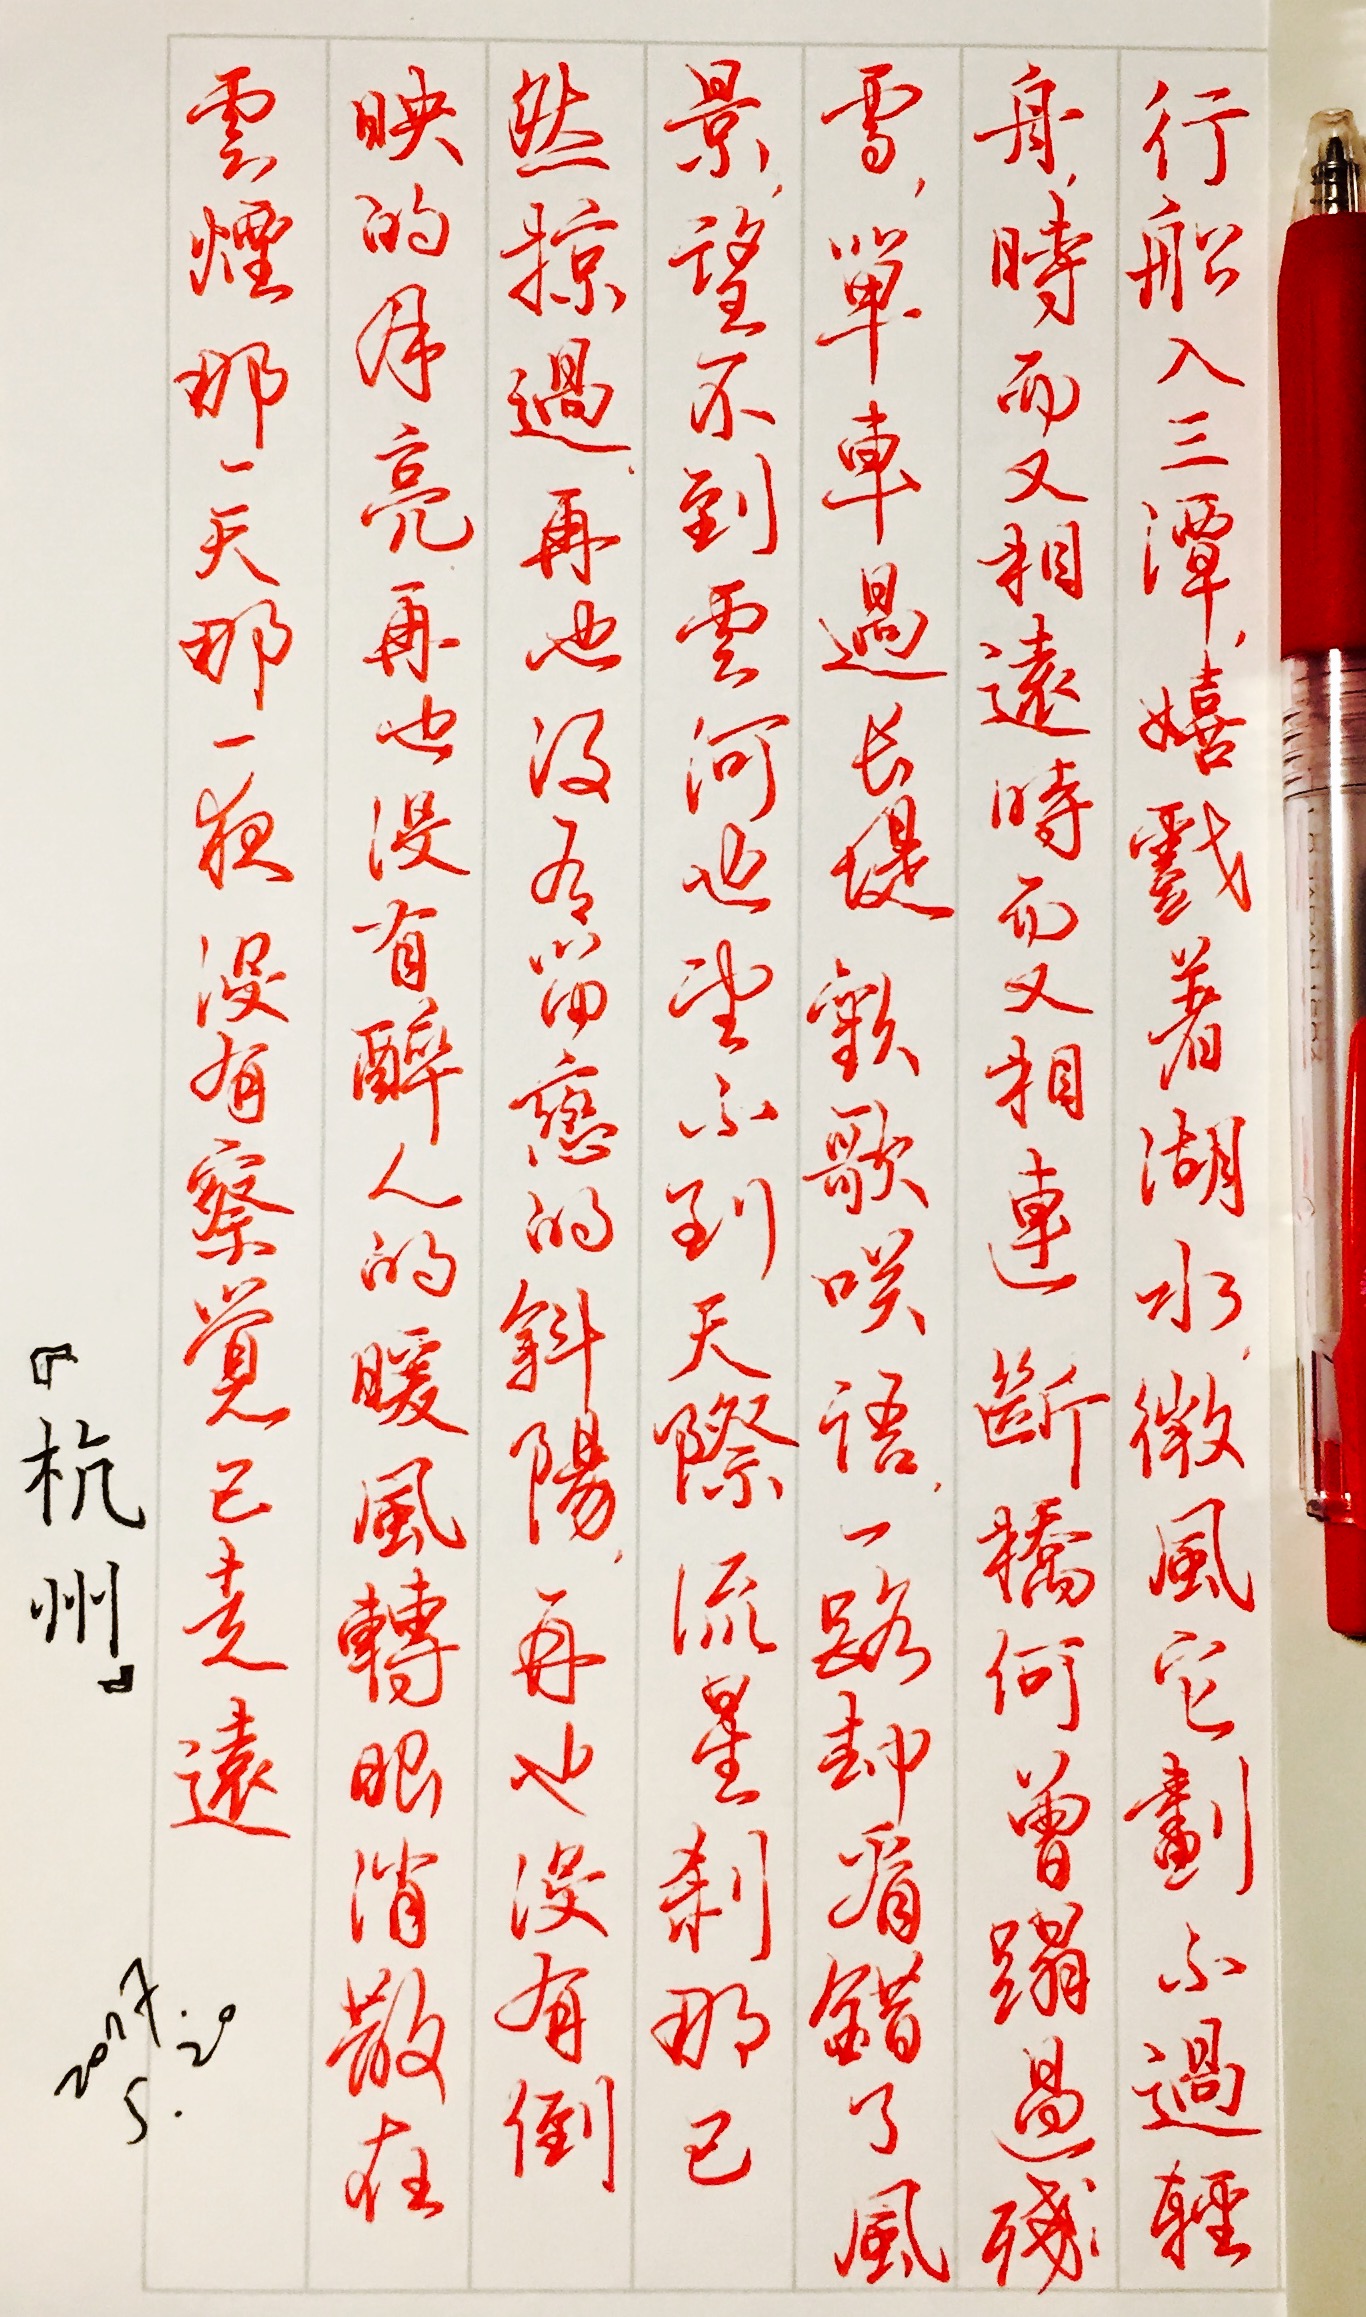 行船入三潭,嬉戲著湖水,微風它劃不過輕
舟,時而又相遠時而又相連 斷橋何曾蹋過殘
雪,單車過長堤 歡歌咲語,一路却看錯了風
景,望不到雲河也望不到天際 流星刹那已
然掠過,再也没有留戀的斜陽,再也沒有倒
映的月亮再也沒有醉人的暖風轉眼消散在
雲煙 那一天那一夜 沒有察覺已走遠
『杭州』
2017.5.20